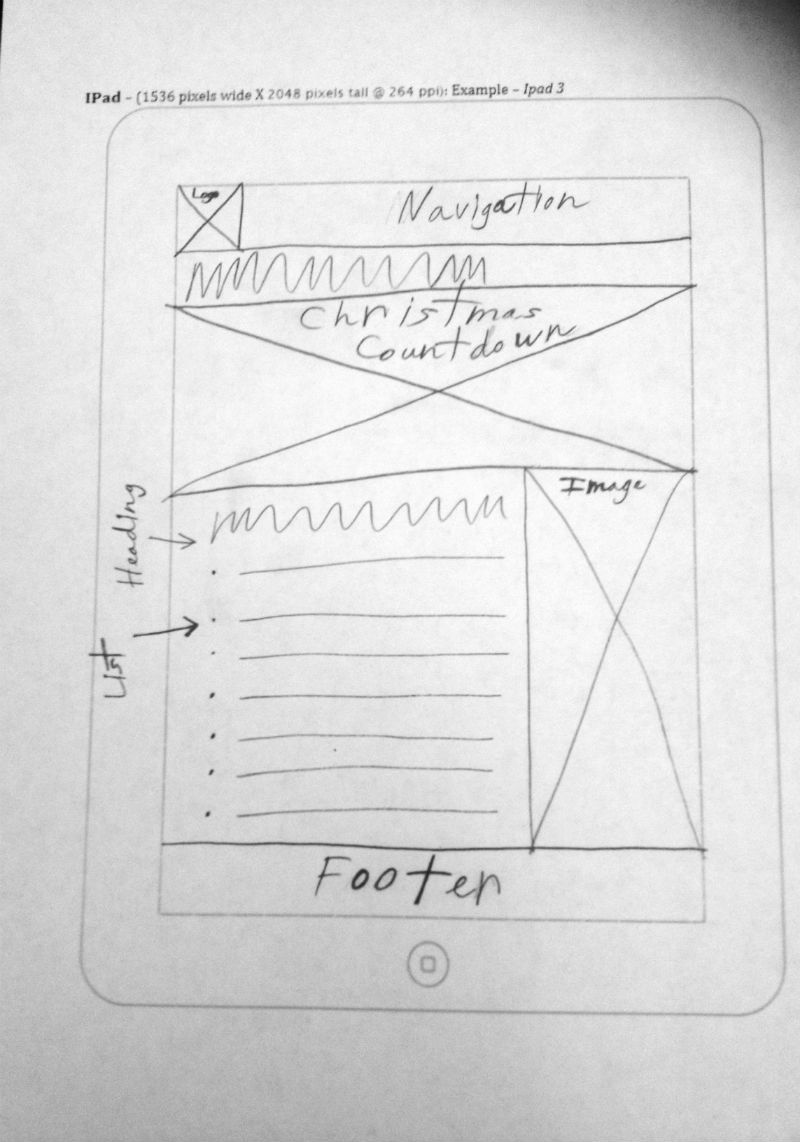 IPad – (1536 pixels wide X 2048 pixels tall @ 264 ppi): Example – Ipad 3
Logo
Navigation
Christmas
Countdown
Image
Heading
List
Footer